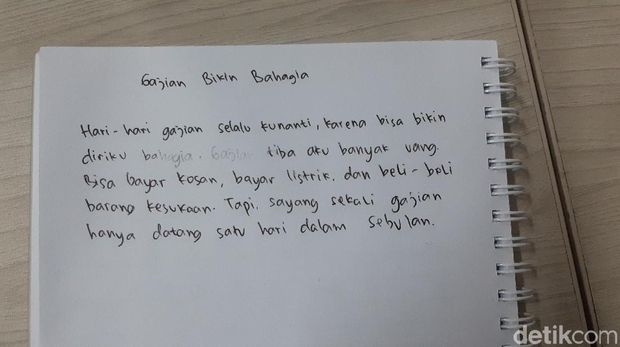 Gajian Bikin Bahagia
Hari-hari gajian selalu kunanti, karena bisa bikin
diriku bahagia. Gajian tiba aku banyak uang.
Bisa bayar kosan, bayar listrik, dan beli-beli
barang kesukaan. Tapi, sayang sekali gajian
hanya datang satu hari dalam sebulan.
detikcom